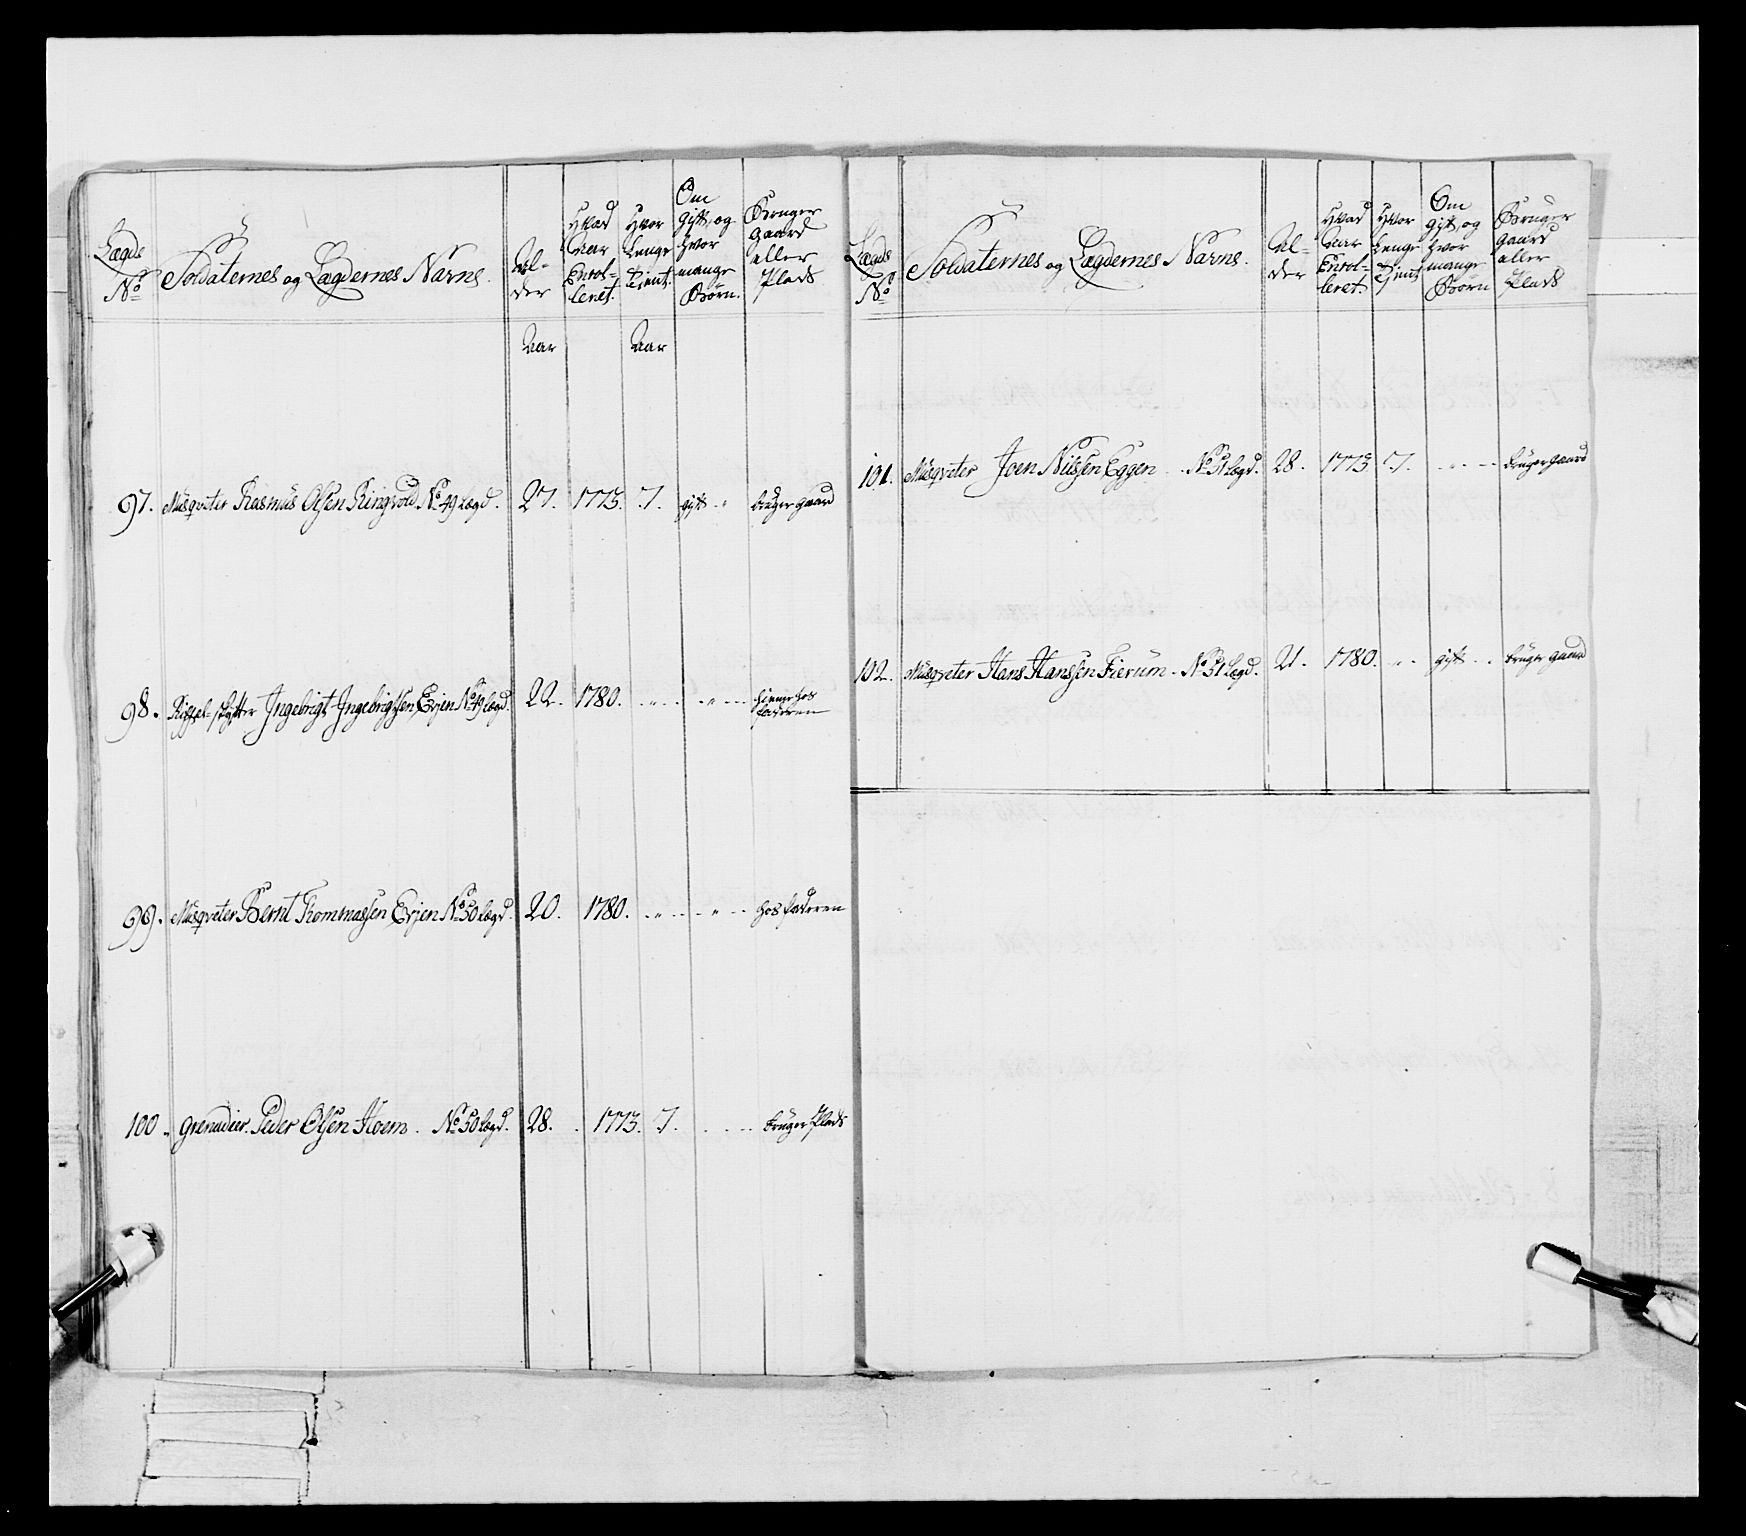 Lægds No
Soldaternes og Lægdernes Navne.
Al-
der
Hvad
Aar
Enrol-
leret.
Hvor
Længe
Tient.
Om
gift, og
hvor
mange
Børn.
Bruger
gaard
eller
Plads
Aar
Aar
97. Musqveter Rasmus Olsen Ringvold No 49 Lægd. 27. 1773. 7. gift - " bruger gaard
98. Riffel-skytter Ingebrigt Ingebrigtsen Erjen No 49 Lægd. 22. 1780. - " - - " - hieme hos
faderen
99. Musqveter Bernt Thommassen Erjen No 50 Lægd. 20. 1780. - " - - " - hos faderen
100. Grenadier. Peder Olsen Hoem. No 50 Lægd. 28. 1773. 7. - - - bruger Plads
Lægds
No
Soldaternes og Lægdernes Navne.
Al-
der
Hvad
Aar
Enrol-
leret.
Hvor
Længe
Tjent
Om
gift, og
hvor
mange
Børn
Bruger
gaard
eller
Plads
101. Musqveter Joen Nilssen Eggen - No 51 Lægd. 28. 1773 7. - " - bruger gaard
102. Musqveter Hans Hanssen Fierum - No 51 Lægd. 21. 1780. - - gift - - bruger gaard